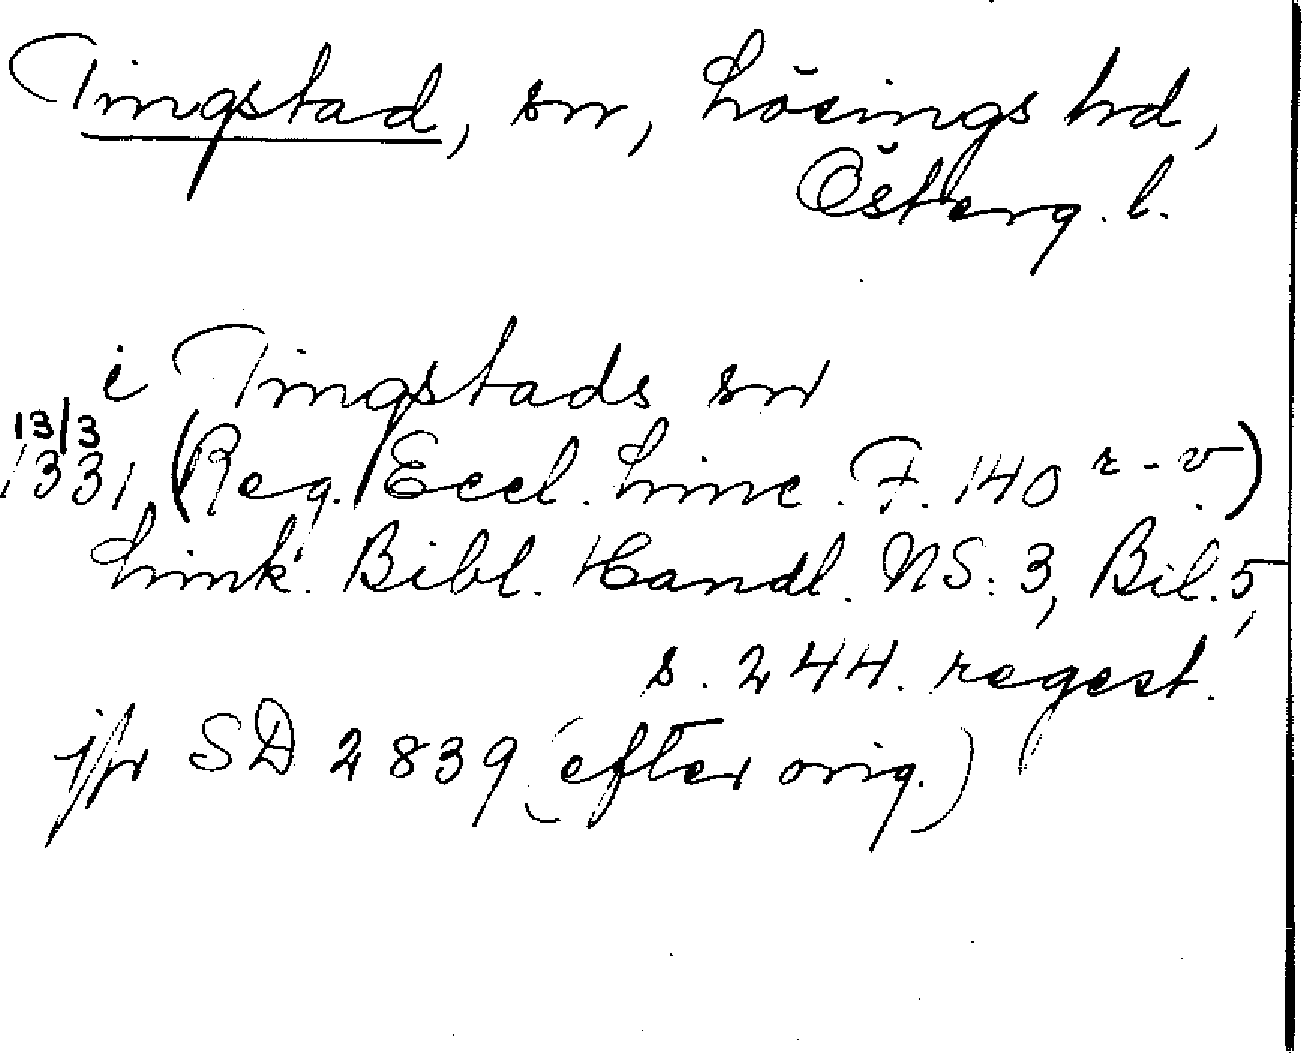 Tingstad, sn, Lösings hd,
Österg. l.
i Tingstads sn
13/3
1331 (Reg. Eccl. Linc. F. 140 r-v.)
Link. Bibl. Handl. NS: 3, Bil. 5,
s. 244. regest.
jfr SD 2839 (efter orig.)